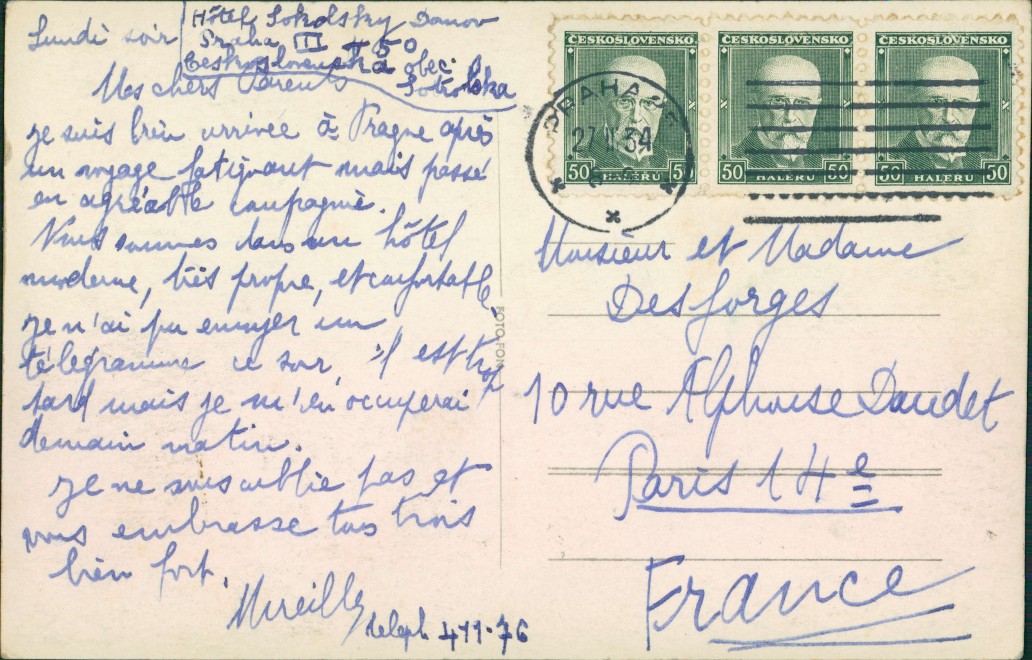 Lundi soir
Hôtel Sokolsky Domov
Praha III 450
Československá obec
Sokolska
Mes chers Parents
je suis bien arrivée à Prague après
un voyage fatiguant mais passé
en agréable compagnie.
Nous sommes dans un hôtel
moderne, très propre, et confortable
je n'ai pu envoyer un
télégramme ce soir, il est trop
tard mais je m'en occuperai
demain matin.
Je ne vous oublie pas et
vous embrasse tous trois
bien fort.
Mireille
teleph 411-76
FOTO-FON
ČESKOSLOVENSKO
50 HALÉŘŮ 50
ČESKOSLOVENSKO
50 HALÉŘŮ 50
ČESKOSLOVENSKO
50 HALÉŘŮ 50
PRAHA
34
Monsieur et Madame
Desforges
10 rue Alphonse Daudet
Paris 14e
France